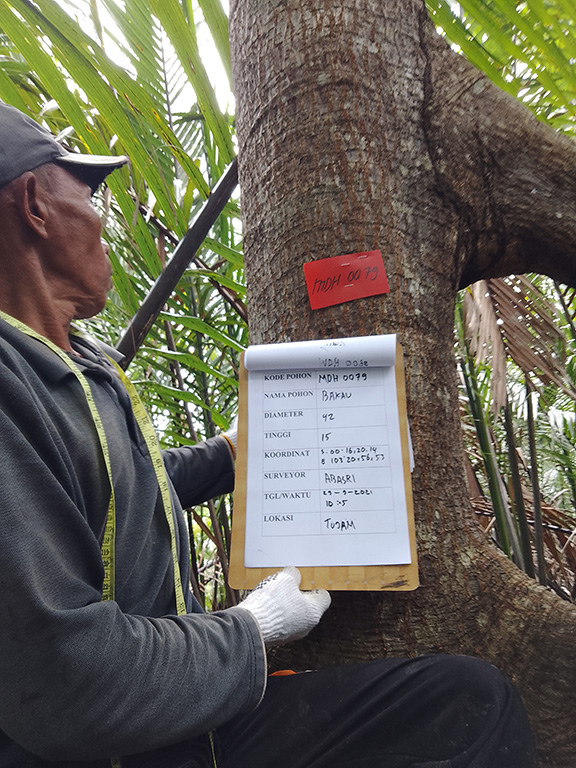 MDH 0079
WDH 0038
KODE POHON MDH 0079
NAMA POHON BAKAU
DIAMETER 42
TINGGI 15
KOORDINAT S. 00.16.20.14
E 103.20.56.53
SURVEYOR ABASRI
TGL/WAKTU 29-9-2021
10:5
LOKASI TUJAM